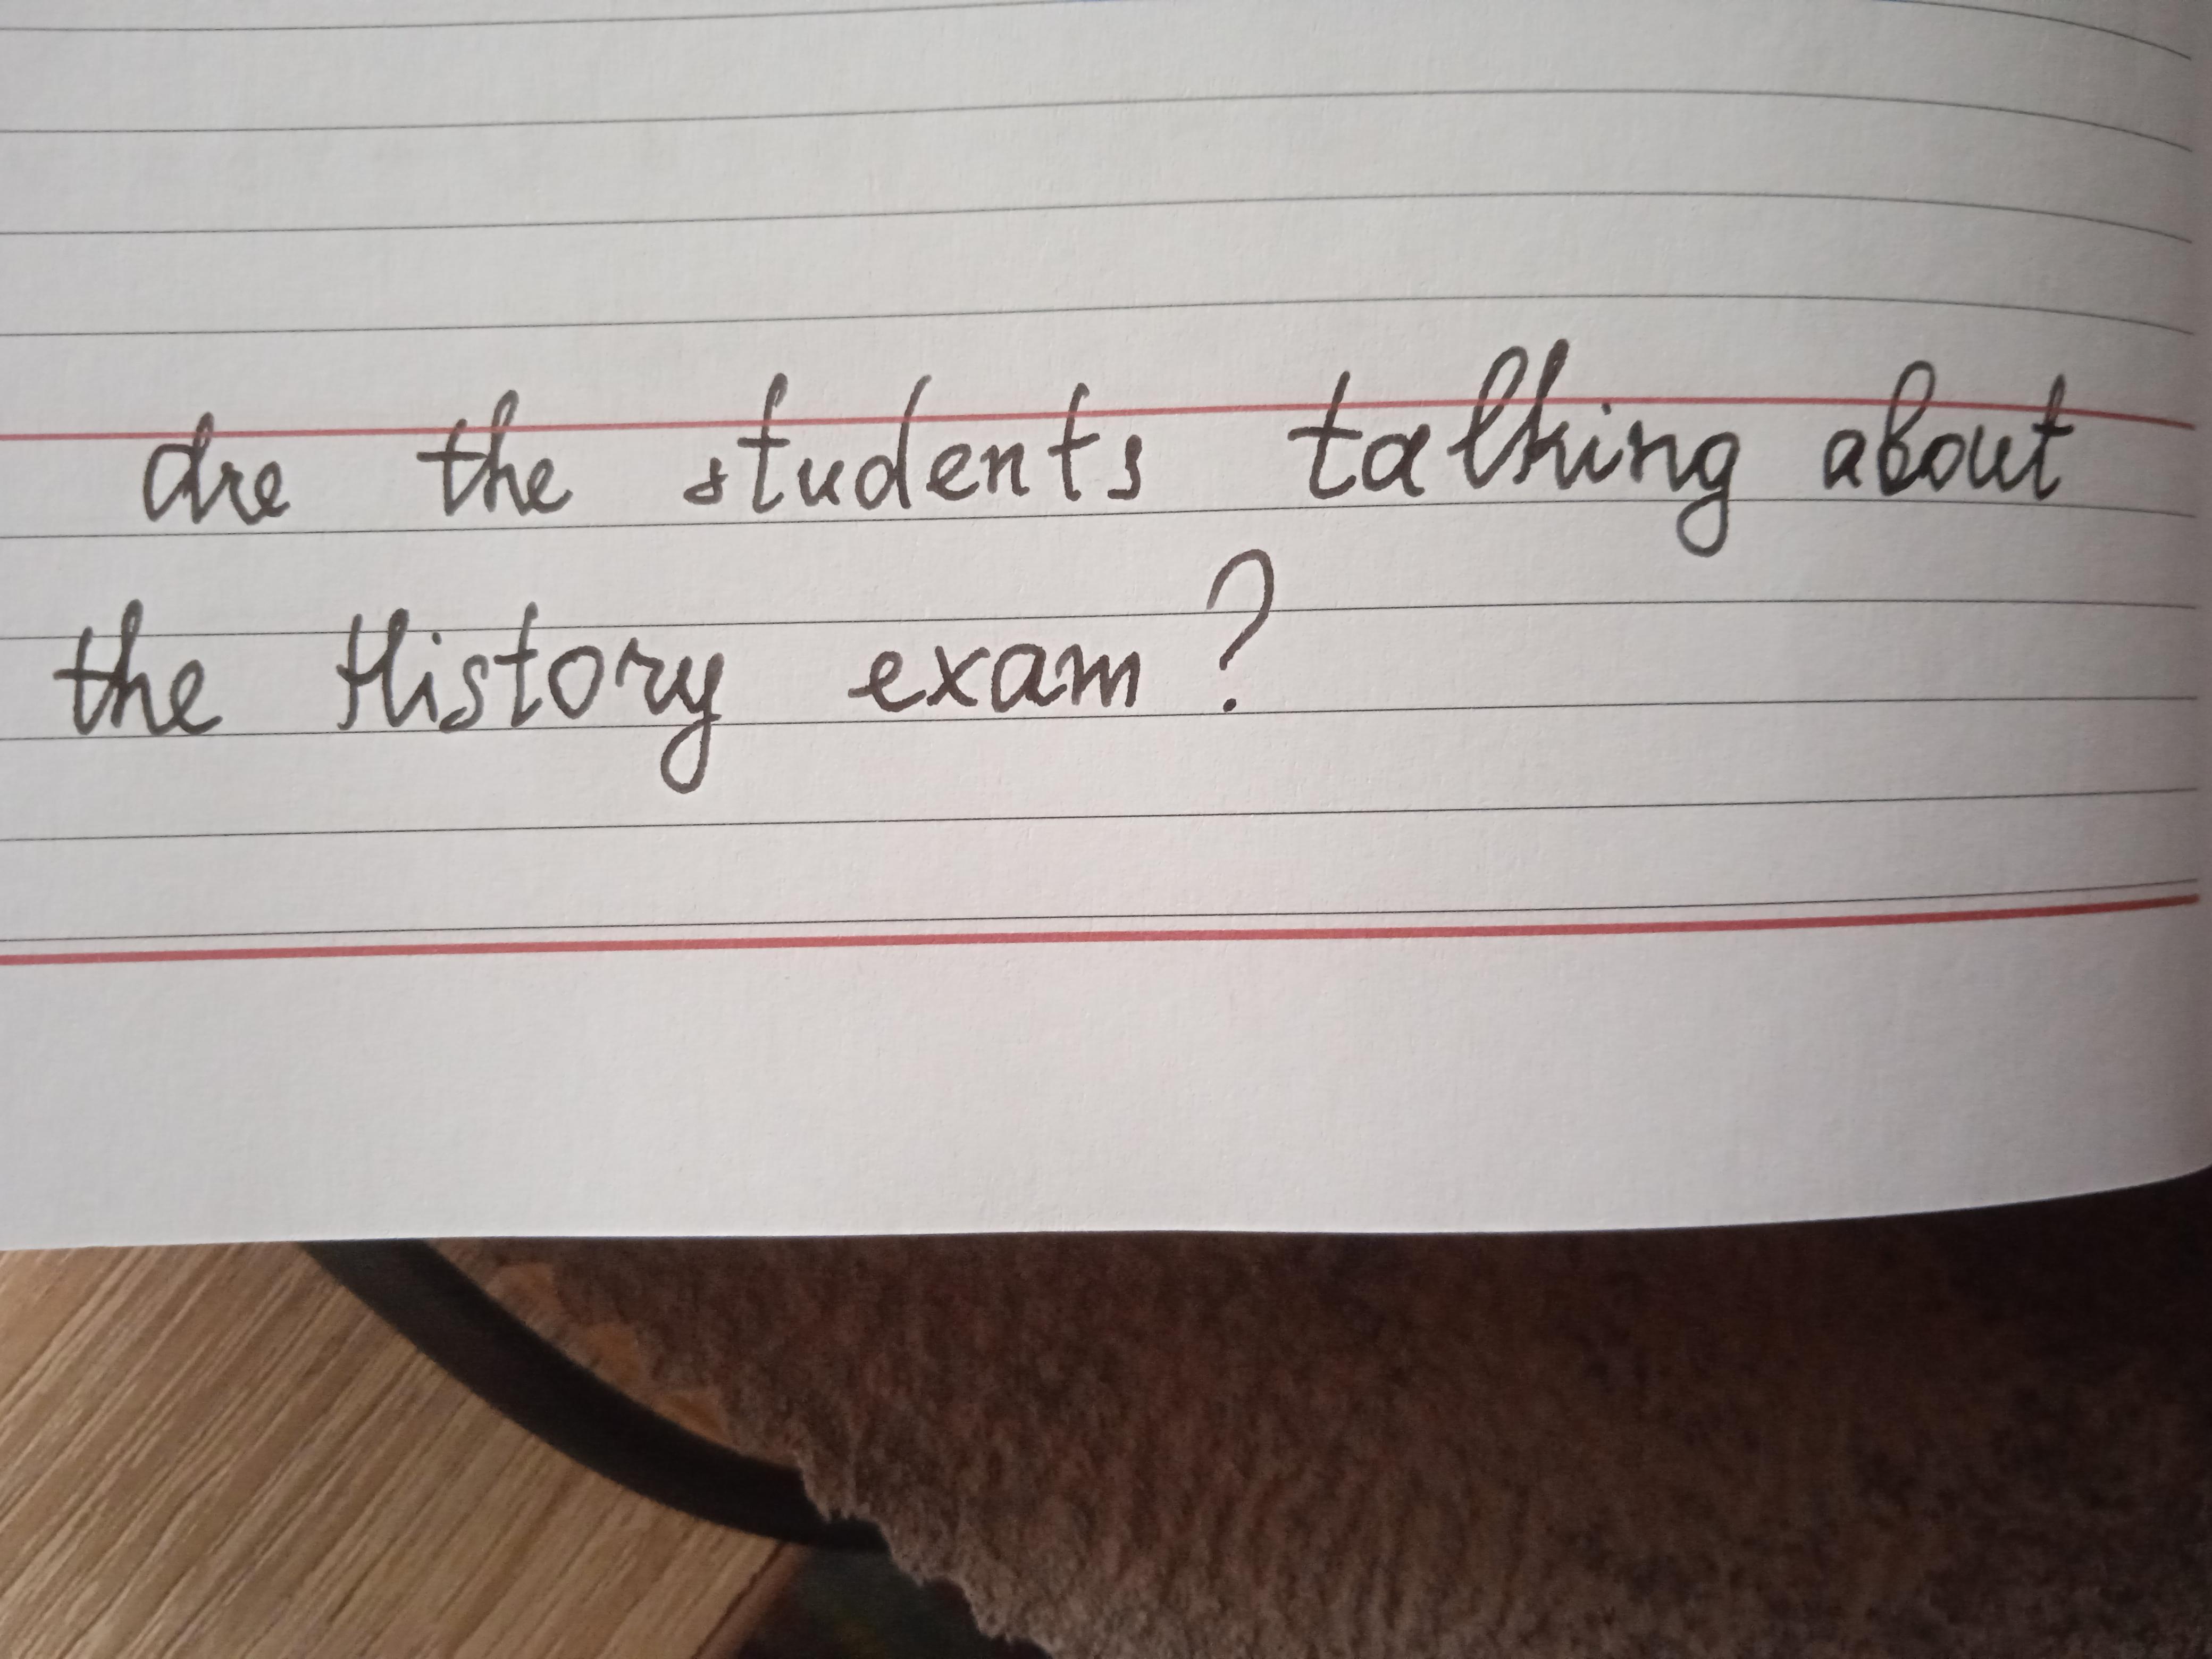 Are the students talking about
the History exam?